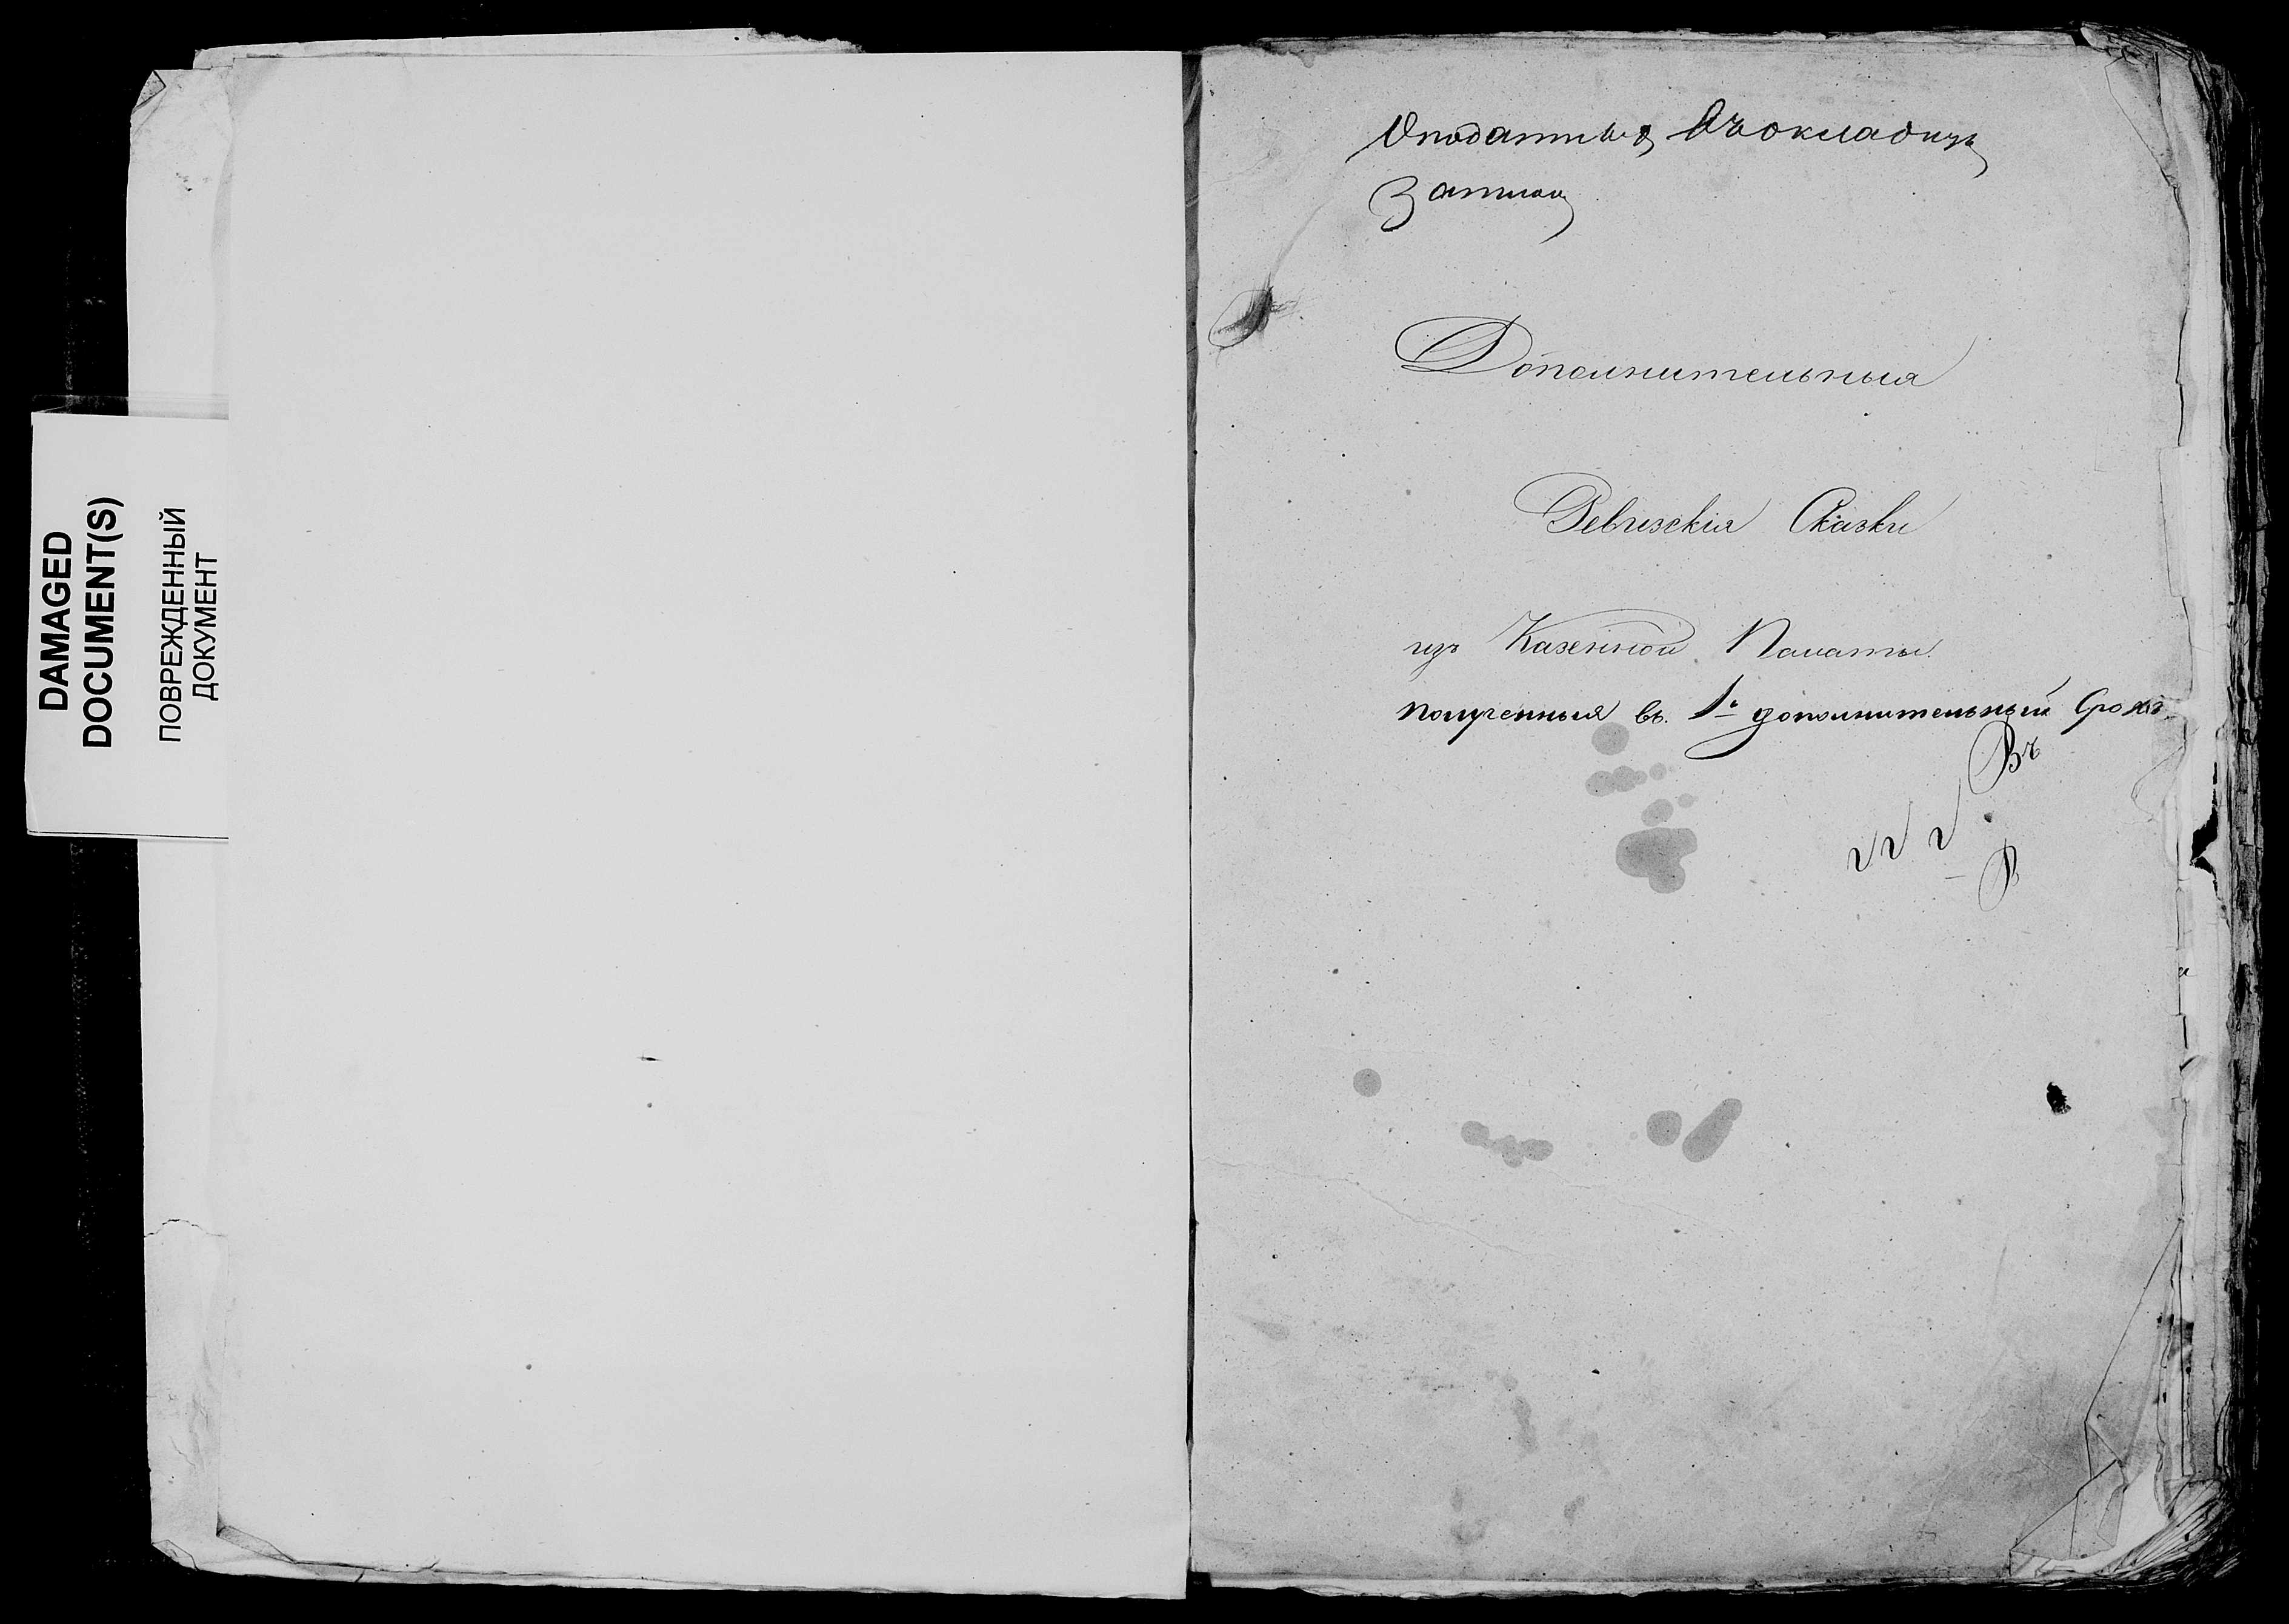 DAMAGED
DOCUMENT(S)
ПОВРЕЖДЕННЫЙ
ДОКУМЕНТ
Дополнительныя
Ревизскія Сказки
изъ Казенной Палаты
полученныя въ 1й дополнительный Срокъ
Въ
В